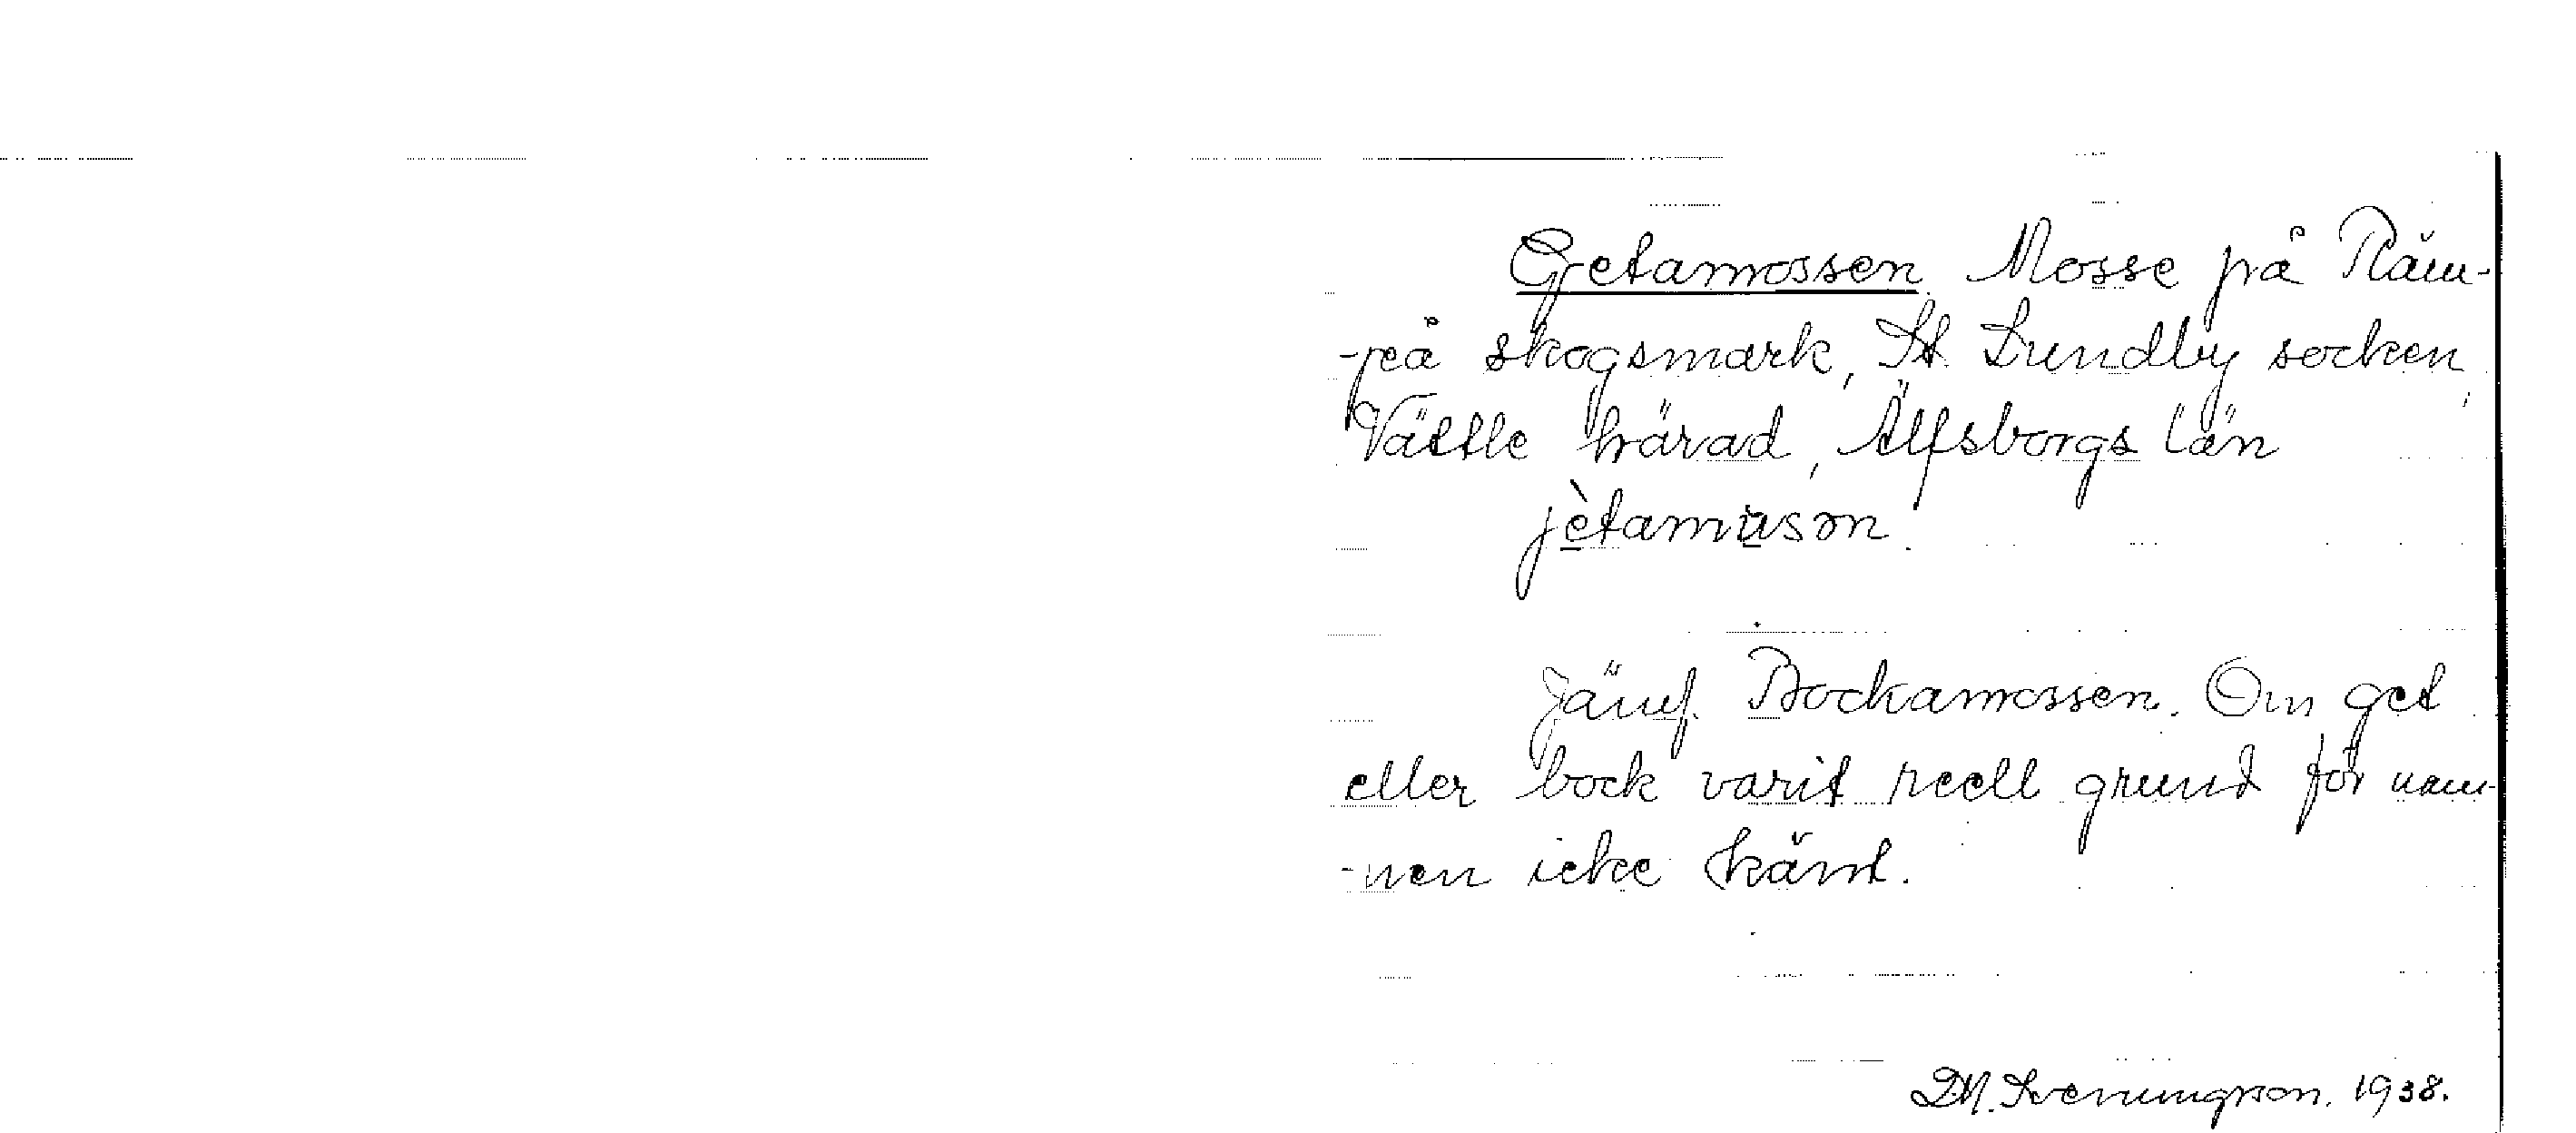 Getamossen. Mosse på Räm-
-peå skogsmark, St. Lundby socken,
Vättle härad, Älfsborgs län
jètamusən.
Jämf. Bockamossen. Om get
eller bock varit reell grund för nam-
-nen icke känt.
D.M. Svenungsson. 1938.